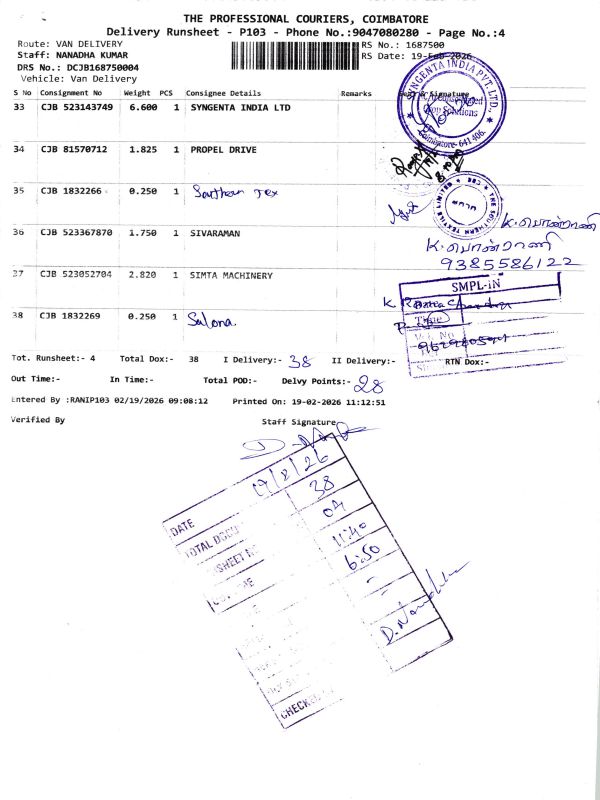 THE PROFESSIONAL COURIERS, COIMBATORE
Delivery Runsheet - P103 - Phone No.:9047080280 - Page No.:4
Route: VAN DELIVERY
RS No.: 1687500
Staff: NANADHA KUMAR
RS Date: 19-Feb-2026
DRS No.: DCJB168750004
Vehicle: Van Delivery
S No Consignment No Weight PCS Consignee Details Remarks Signature
33 CJB 523143749 6.600 1 SYNGENTA INDIA LTD
SYNGENTA INDIA PVT. LTD.,
Coimbatore- 641 406.
34 CJB 81570712 1.825 1 PROPEL DRIVE
35 CJB 1832266 0.250 1 Southern Tex
36 CJB 523367870 1.750 1 SIVARAMAN
க.பொன்ராணி
க.பொன்ராணி
9385586122
37 CJB 523052704 2.820 1 SIMTA MACHINERY
SMPL-IN
K. Rama Chandra
Time
38 CJB 1832269 0.250 1 Salona.
Tot. Runsheet:- 4 Total Dox:- 38 I Delivery:- 38 II Delivery:- RTN Dox:-
Out Time:- In Time:- Total POD:- Delvy Points:- 28
Entered By :RANIP103 02/19/2026 09:08:12 Printed On: 19-02-2026 11:12:51
Verified By Staff Signature
DATE 19/2/26
TOTAL DOCU 38
SHEET NO 04
11:40
6:50
CHECKED